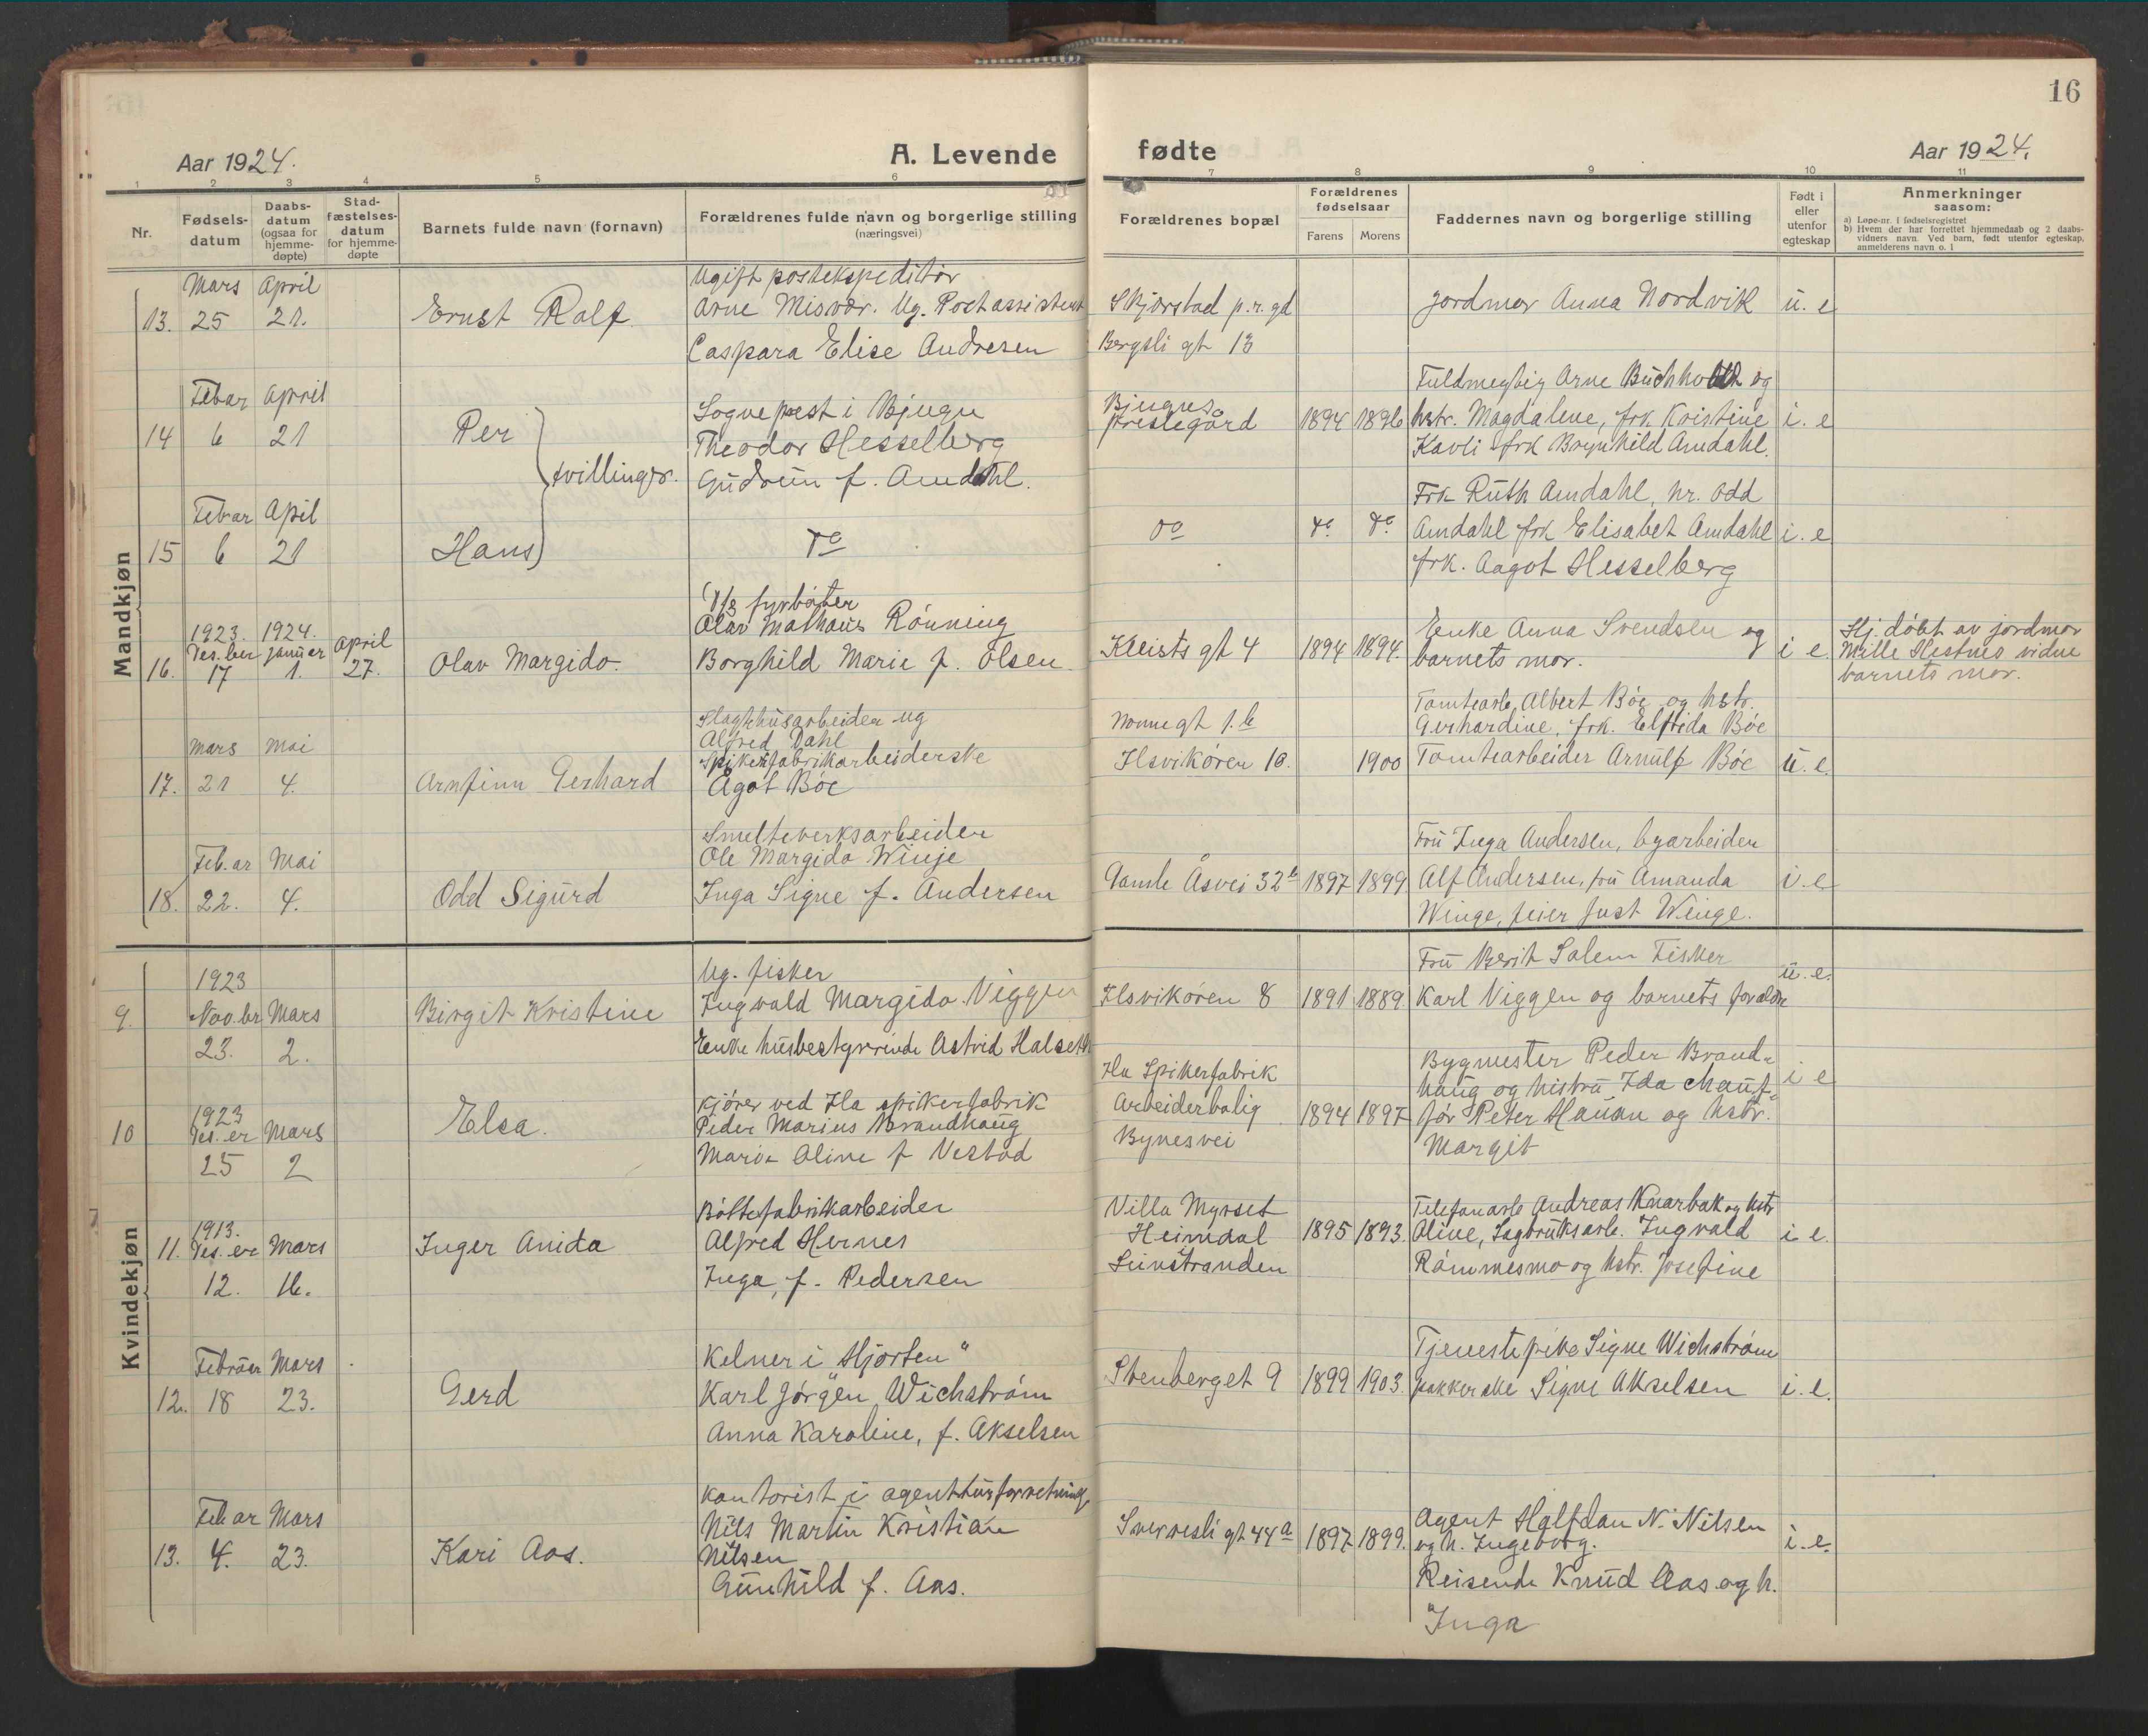 16
Aar 1924.
A. Levende fødte
Aar 1924.
1 2 3 4 5 6 7 8 9 10 11
Nr.
Fødsels-
datum
Daabs-
datum
(ogsaa for
hjemme-
døpte)
Stad-
fæstelses-
datum
for hjemme-
døpte
Barnets fulde navn (fornavn)
Forældrenes fulde navn og borgerlige stilling
(næringsvei)
Forældrenes bopæl
Forældrenes
fødselsaar
Farens Morens
Faddernes navn og borgerlige stilling
Født i
eller
utenfor
egteskap
Anmerkninger
saasom:
a) Løpe-nr. i fødselsregistret
b) Hvem der har forrettet hjemmedaab og 2 daabs-
vidners navn. Ved barn, født utenfor egteskap,
anmelderens navn o. l
Mandkjøn
Mars April
13. 25 21.
Ernst Rolf
Ugift postekspeditør
Arne Misvær. Ug. Postassistent
Caspara Elise Andresen
Skjørstad p.r. gd
Bergsli gt 13
Jordmor Anna Nordvik u. e
Febar April
14 6 21
Per
tvillinger.
Sogneprest i Bjugn
Theodor Hesselberg
Gudrun f. Amdahl.
Bjugns
prestegård 1894 1896
Fuldmegtig Arne Buchholdt og
hstr. Magdalene, frk Kristine i. e
Kavli frk Brynhild Amdahl.
Febar April
15 6 21
Hans
do
do do do
Frk Ruth Amdahl, hr. Odd
Amdahl frk Elisabet Amdahl i. e
frk. Aagot Hesselberg
1923. 1924.
Des.ber januer April
16. 17 1. 27.
Olav Margido.
fyrbøter
Olav Mathæus Rønning
Borghild Marie f. Olsen
Kleists gt 4 1894 1894.
Enke Anna Svendsen og
barnets mor. i e.
Hj. døbt av jordmor
Mille Hestnes vidne
barnets mor.
mars mai
17. 21 4.
Arnfinn Gerhard
Slagthusarbeider ug
Alfred Dahl
Spikerfabrikarbeiderske
Ågot Bøe
Nonnegt 1.b
Ilsvikøren 10. 1900
Tomtearb. Albert Bøe og hstr.
Gerhardine, frk. Elfrida Bøe
Tomtearbeider Arnulf Bøe u. e.
Feb.ar Mai
18. 22. 4.
Odd Sigurd
Smelteverksarbeider
Ole Margido Winje
Inga Signe f. Andersen
Gamle Åsvei 32b 1897 1899
Fru Inga Andersen, byarbeider
Alf Andersen, fru Amanda i. e
Winge, feier Just Winge.
Kvindekjøn
1923
9. Nov.br Mars
23. 2.
Birgit Kristine
Ug. fisker
Ingvald Margido Viggen
Enke husbestyrerinde Astrid Halseth
Ilsvikøren 8 1891 1889.
Fru Berit Solem Fisker
Karl Viggen og barnets foreldre
u. e.
1923
10 Des. er Mars
25 2
Elsa.
Kjører ved Ila spikerfabrik
Peder Marius Brandhaug
Marie Oline f Vestad
Ila Spikerfabrik
Arbeiderbolig 1894 1897
Bynesvei
Bygmester Peder Brand-
haug og histru Ida chauf- i e
før Peter Hauan og hstr.
Margit
1913.
11. Des. er Mars
12. 16.
Inger Anida
Bøttefabrikarbeider
Alfred Hernes
Inga, f. Pedersen
Villa Myrset
Heimdal 1895 1893.
Leinstranden
Telefonarb Andreas Knarbak og hstr
Oline, Sagbruksarb. Ingvald i e.
Rømmesmo og hstr. Josefine
Februer Mars
12. 18 23.
Gerd
Kelner i Hjorten"
Karl Jørgen Wichstrøm
Anna Karoline, f. Akselsen
Stenberget 9 1899 1903.
Tjenestepike Signe Wichstrøm
pakkerske Signe Akselsen i. e.
Feb ar Mars
13. 4. 23.
Kari Aas.
Kontorist i agenturforretning
Nils Martin Kristian
Nilsen
Gunhild f. Aas.
Sverresli gt 44a 1897 1899.
Agent Halfdan N. Nilsen
og h. Ingeborg. i. e.
Reisende Knud Aas og h.
Inga